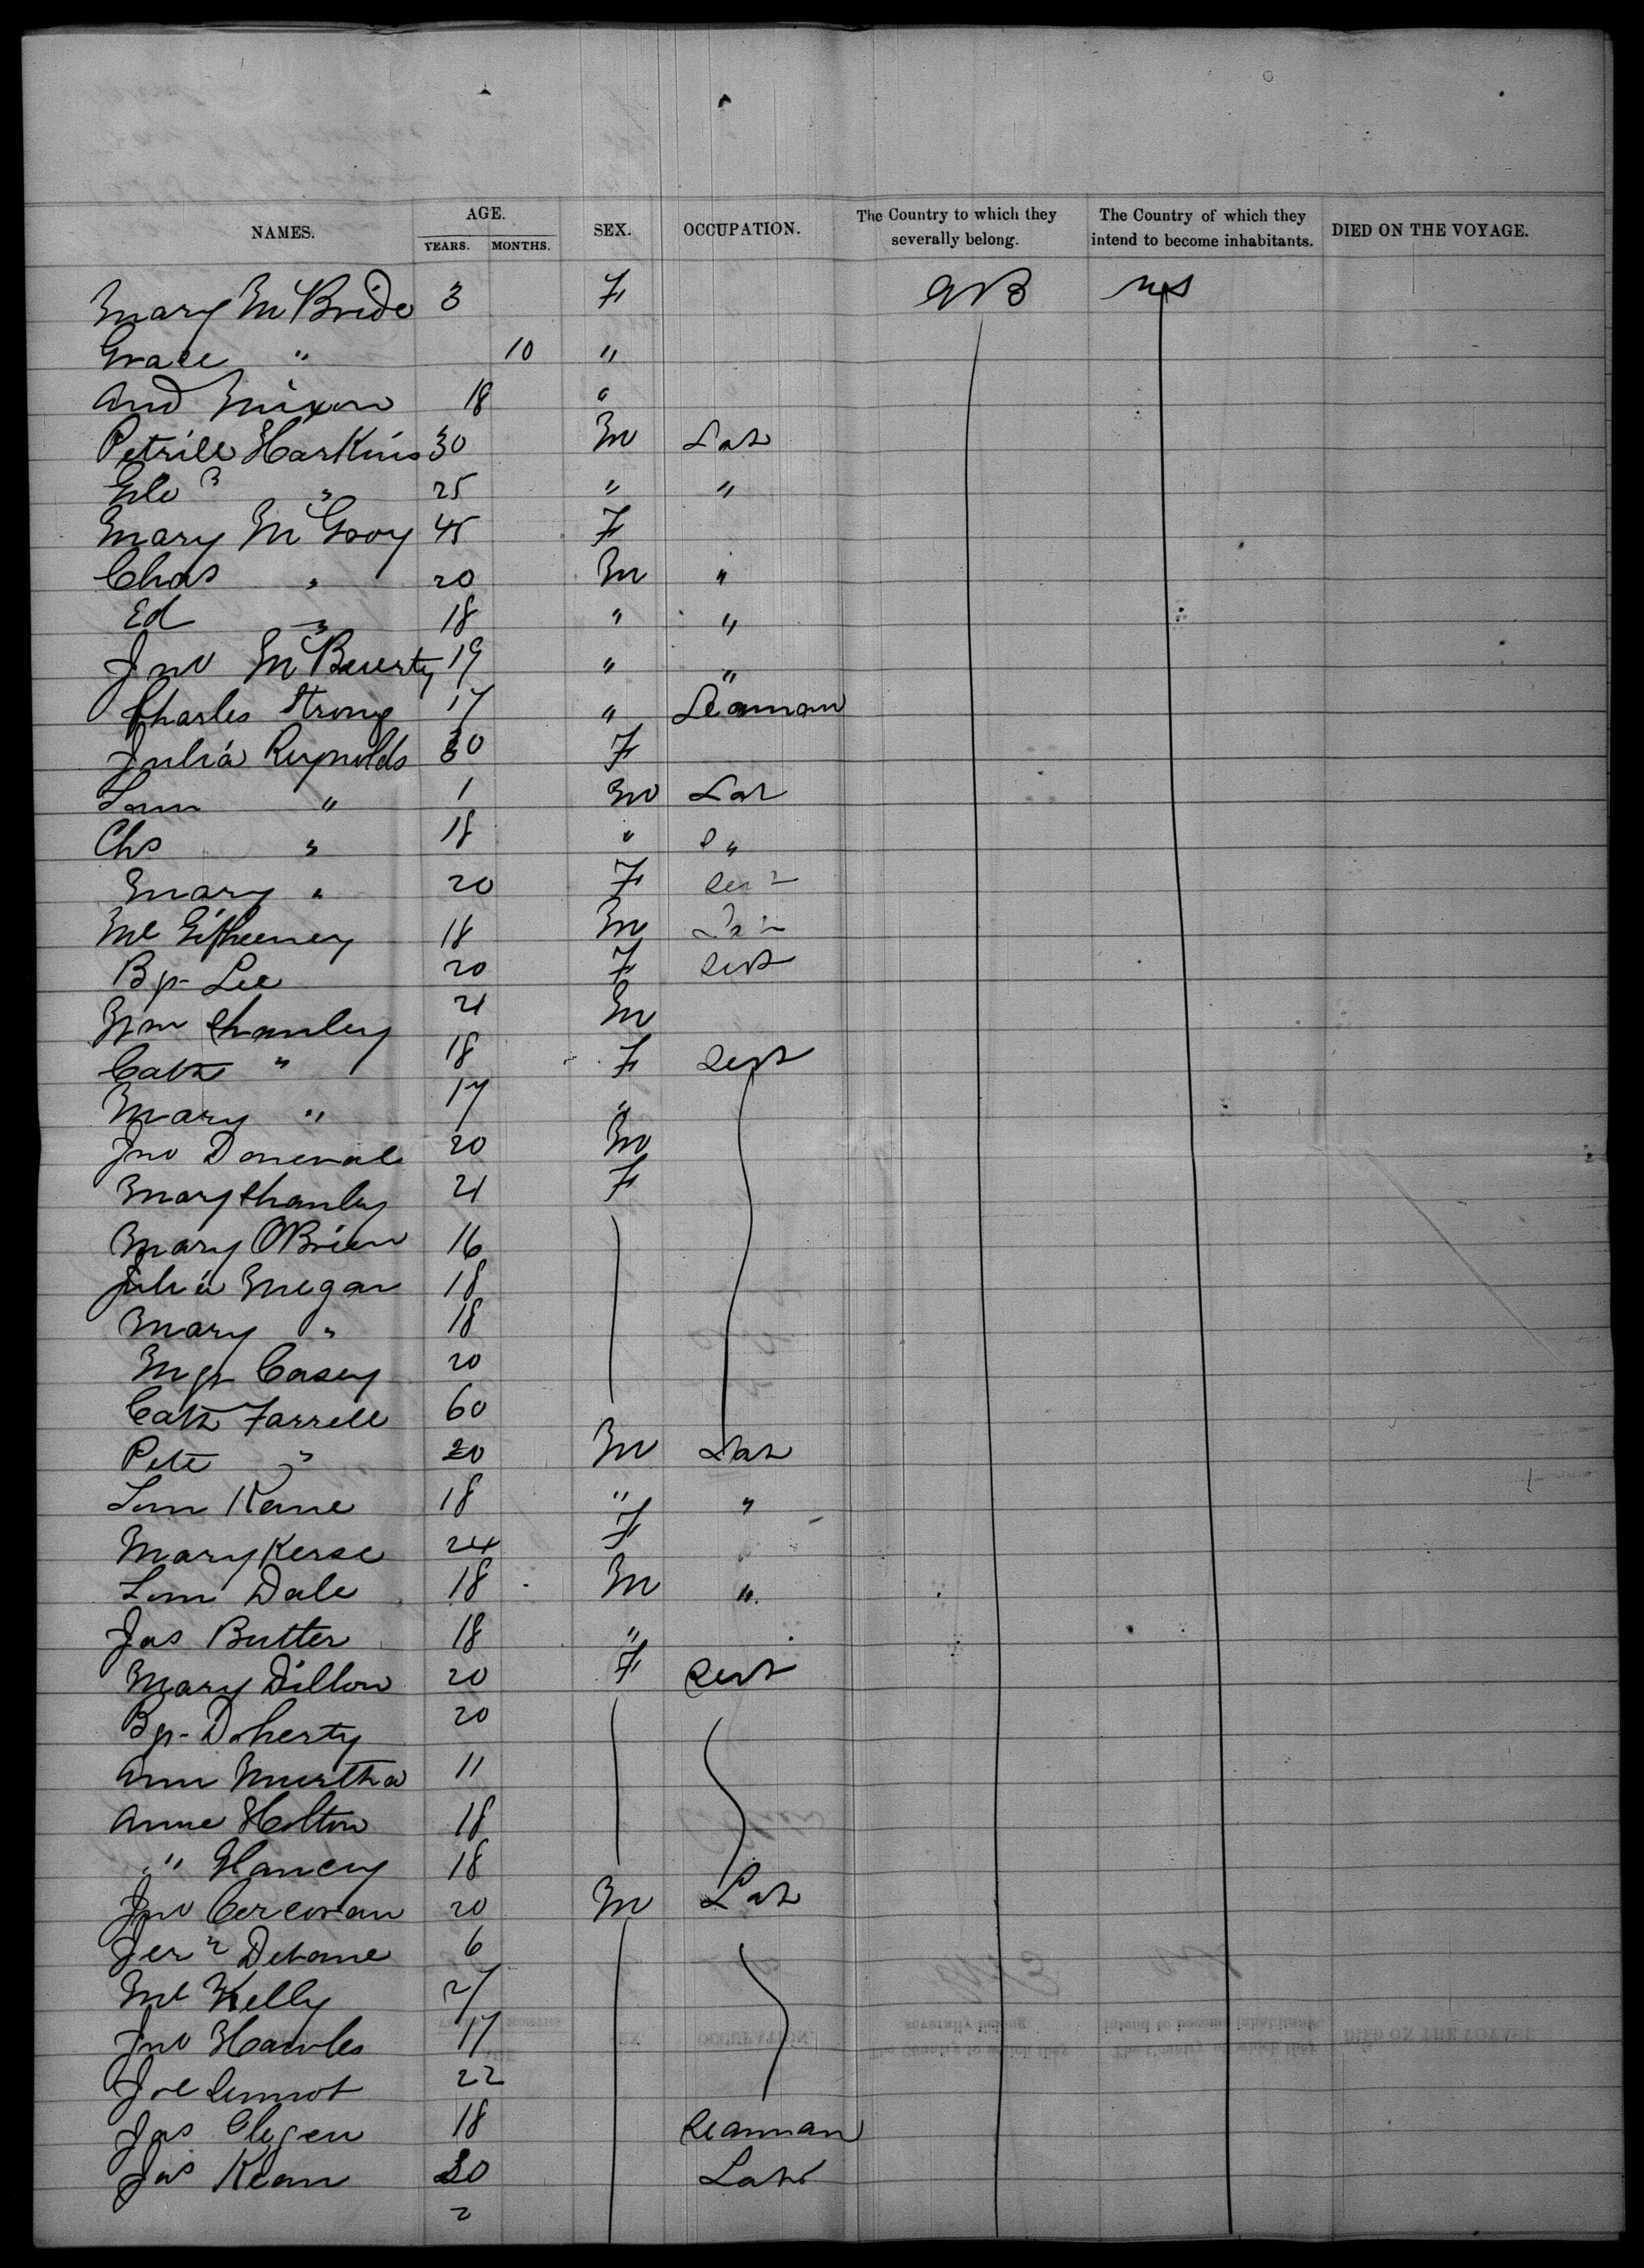 NAMES. AGE. YEARS. MONTHS. SEX. OCCUPATION. The Country to which they severally belong. The Country of which they intend to become inhabitants. DIED ON THE VOYAGE.
Mary McBride 3 F GB US
Grace " 10 "
And Mixon 18 "
Harkins 30 M Lab
Geo " 25 " "
Mary McGroy 45 F
Chas " 20 M "
Ed " 18 " "
Jno 19 " "
Charles Strong 17 " Seaman
Julia Reynolds 30 F
" 1 M Lab
Chs " 18 " "
Mary " 20 F Servt
Ml 18 M Lab
Bgt Lee 20 F Servt
Wm Shanley 21 M
Cath " 18 F Servt
Mary " 17 "
Jno 20 M
Mary Shanley 21 F
Mary OBrien 16
Julia Megan 18
Mary " 18
Mgt Casey 20
Cath Farrell 60
Pete " 20 M Lab
Kane 18 " "
Mary Kerse 24 F
Dale 18 M "
Jas Butler 18 "
Mary Dillon 20 F Servt
Bgt Doherty 20
Ann Murtha 11
Anne Holton 18
" Glancy 18
Jno Corcoran 20 M Lab
6
Ml Kelly 27
Jno Hawles 17
Joe Sinnot 22
Jas 18 Seaman
Jas Kean 20 Labr
2